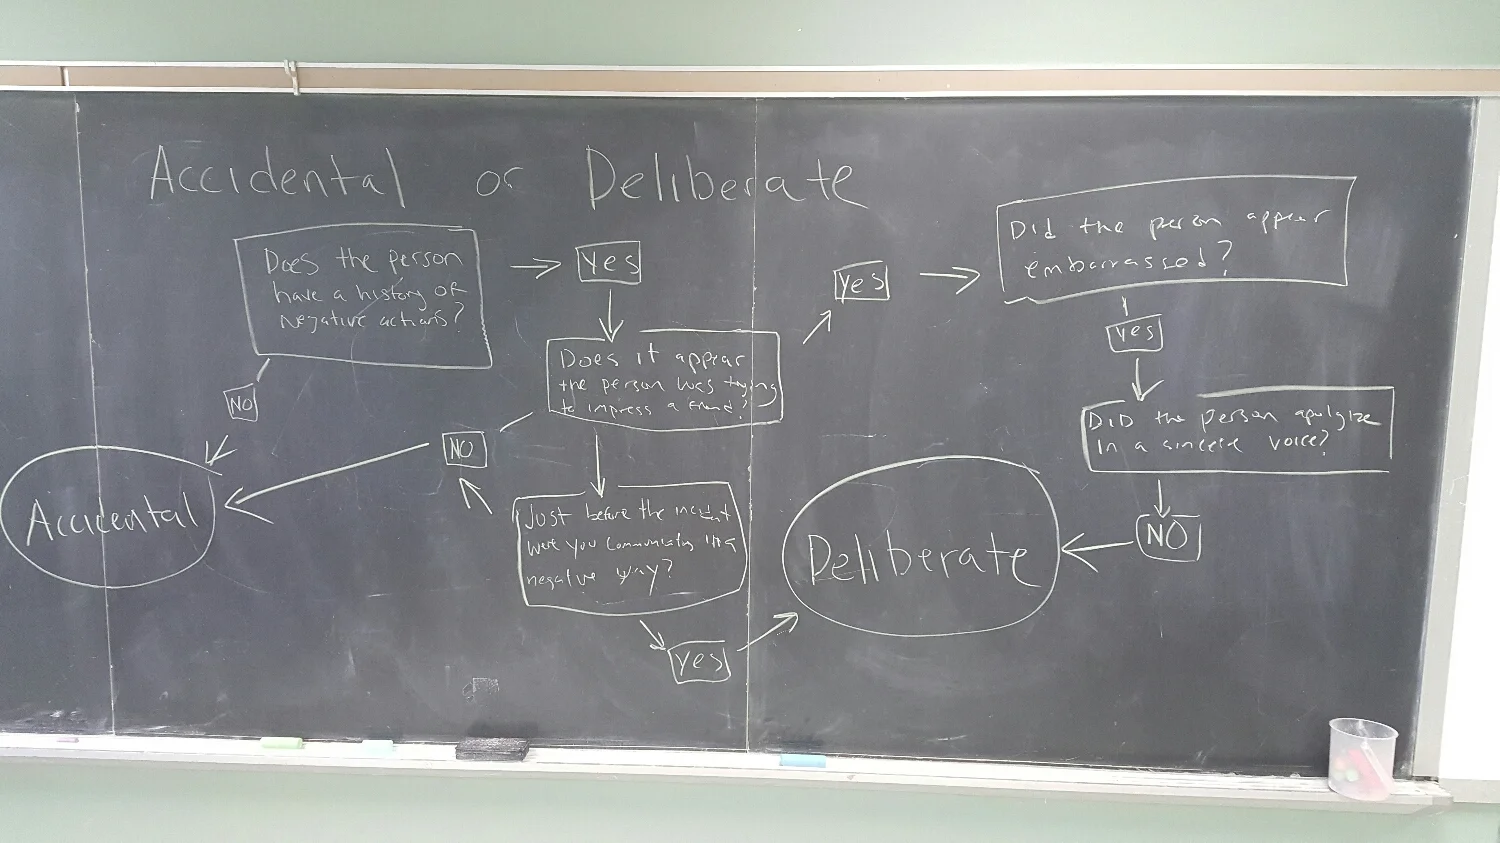 Accidental or Deliberate
Does the person
have a history OF
Negative actions?
Yes
NO
Does it appear
the person was trying
to impress a friend?
NO
Just before the incident
were you in a
negative way?
Yes
Accidental
Yes
Did the person appear
embarrassed?
yes
DiD the person apolgize
in a sincere voice?
NO
Deliberate